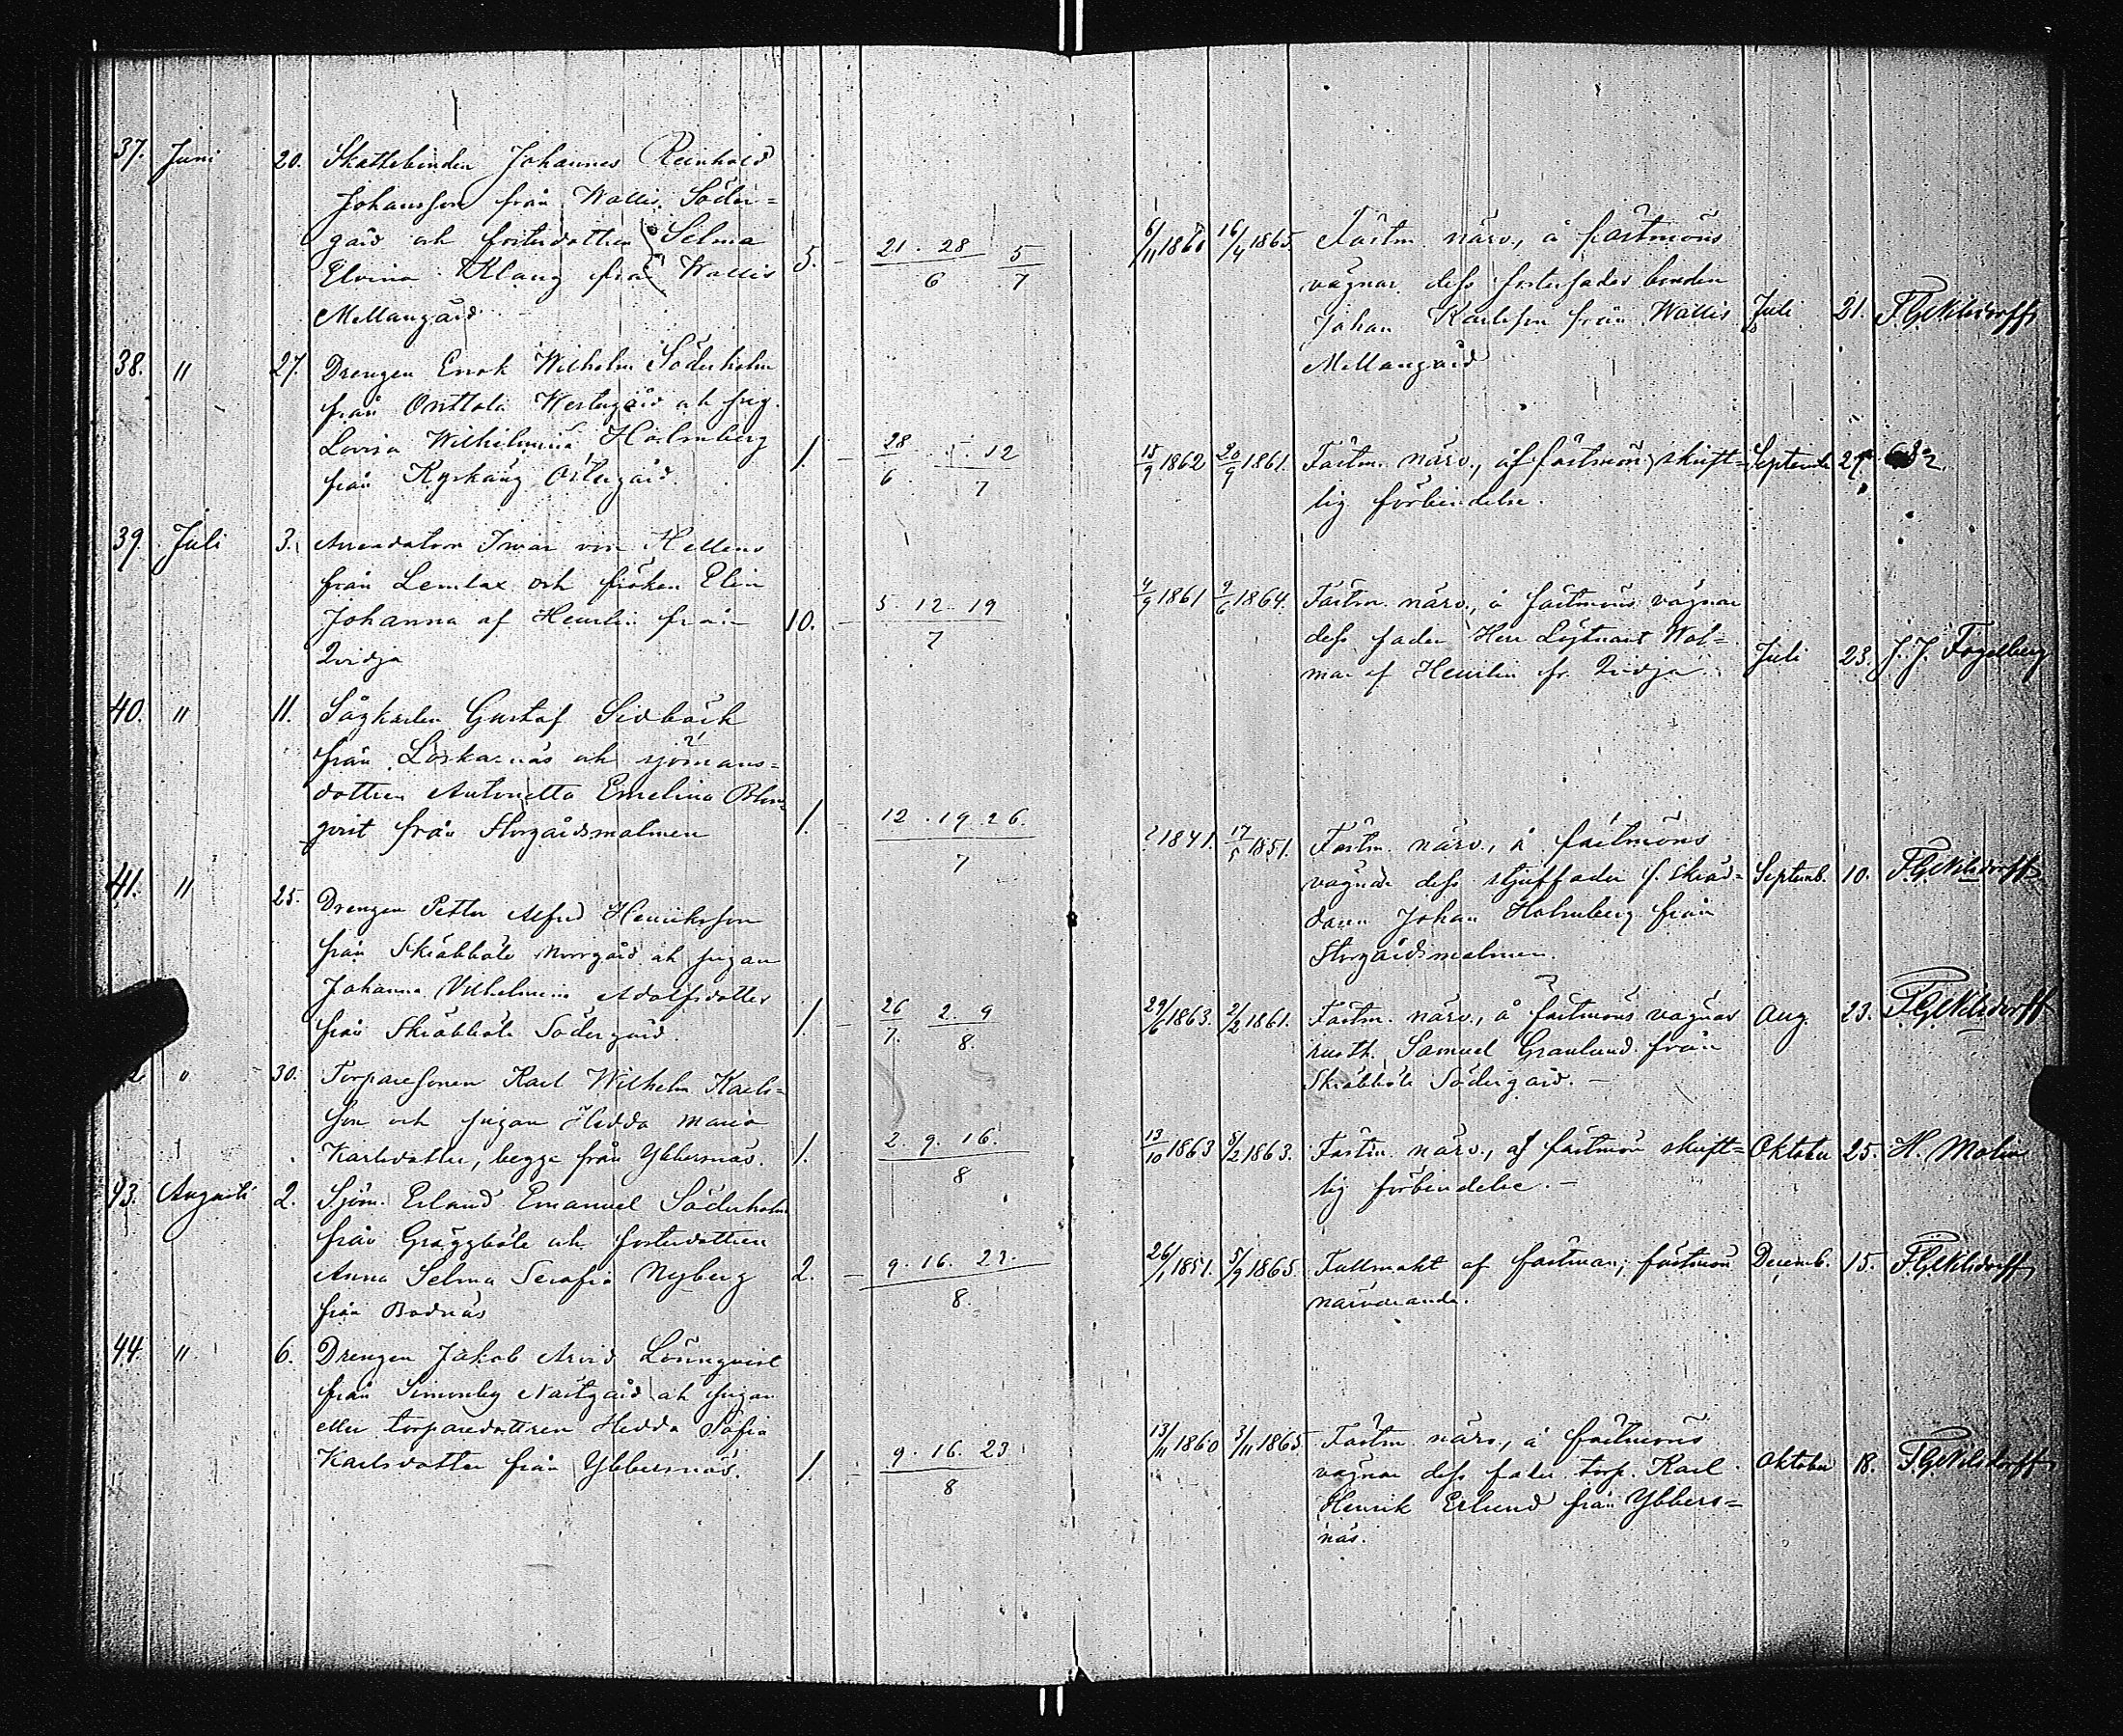 37. Juni 20. Skattebonden Johannes Reinhold
Johansson från Wallis Söder=
gård och fosterdottren Selma
Elvina Klang från Wallis 5. – 21. 28 / 6 5 / 7
Mellangård
6/11 1860 16/4 1865 Fästm. närv., å fästmöns
vägnar dess fosterfader bonden
Johan Karlsson från Wallis Juli 21.
Mellangård
38. " 27. Drengen Enok Wilhelm Söderholm
från Vesterg­ård och pig.
Lovisa Wilhelmina Holmberg 1. – 28 / 6 5. 12 / 7
från Kyrkäng Östergård.
15/9 1862 20/9 1861. Fästm. närv., af fästmön skrift=
lig förbindelse.
39. Juli 3. Arrendatorn Iwar von Hellens
från Lemlax och fröken Elin
Johanna af Heurlin från 10. – 5. 12. 19 / 7
Qvidja
4/9 1861 9/6 1864. Fästm. närv., å fästmöns vägnar
dess fader Herr Löjtnant Wol=
mar af Heurlin fr. Qvidja. Juli 23. J. J. Fogelberg
40. " 11. Sågkarlen Gustaf Sidbäck
från Löskarnäs och sjömans=
dottren Antonetta Emelina Blom=
qvist från Storgårdsmalmen 1. – 12. 19. 26. / 7
? 1841. 17/5 1851. Fästm. närv., å fästmöns
vägnar dess stjuffader f. skräd= Septemb. 10.
daren Johan Holmberg från
Storgårdsmalmen.
41. " 25. Drengen Petter Alfred Henriksson
från Skräbböle Norrgård och pigan
Johanna Vilhelmina Adolfsdotter
från Skräbböle Södergård. 1. – 26 / 7. 2. 9 / 8.
29/6 1863. 2/2 1861. Fästm. närv., å fästmöns vägnar Aug. 23.
rusth. Samuel Granlund från
Skräbböle Södergård. –
" 30. Torparesonen Karl Wilhelm Karls=
son och pigan Hedda Maria
Karlsdotter, begge från Ybbersnäs. 1. – 2. 9. 16. / 8
13/10 1863 5/2 1863. Fästm. närv., af fästmön skrift= Oktober 25. H. Molin
lig förbindelse. –
43. Augusti 2. Sjöm. Erland Emanuel Söderholm
från Gräggböle och fosterdottren
Anna Selma Serafia Nyberg 2. – 9. 16. 23. / 8.
från Bodnäs
26/1 1851. 5/9 1865. Fullmakt af fästman; fästmön Decemb. 15.
närvarande.
44. " 6. Drengen Jakob Arvid Lönnqvist
från Simonby Nästgård och pigan
eller torparedottren Hedda Sofia
Karlsdotter från Ybbersnäs. 1. – 9. 16. 23 / 8
13/11 1860 3/11 1865 Fästm. närv., å fästmöns
vägnar dess fader torp. Karl Oktober 18.
Henrik Erlund från Ybbers=
näs.